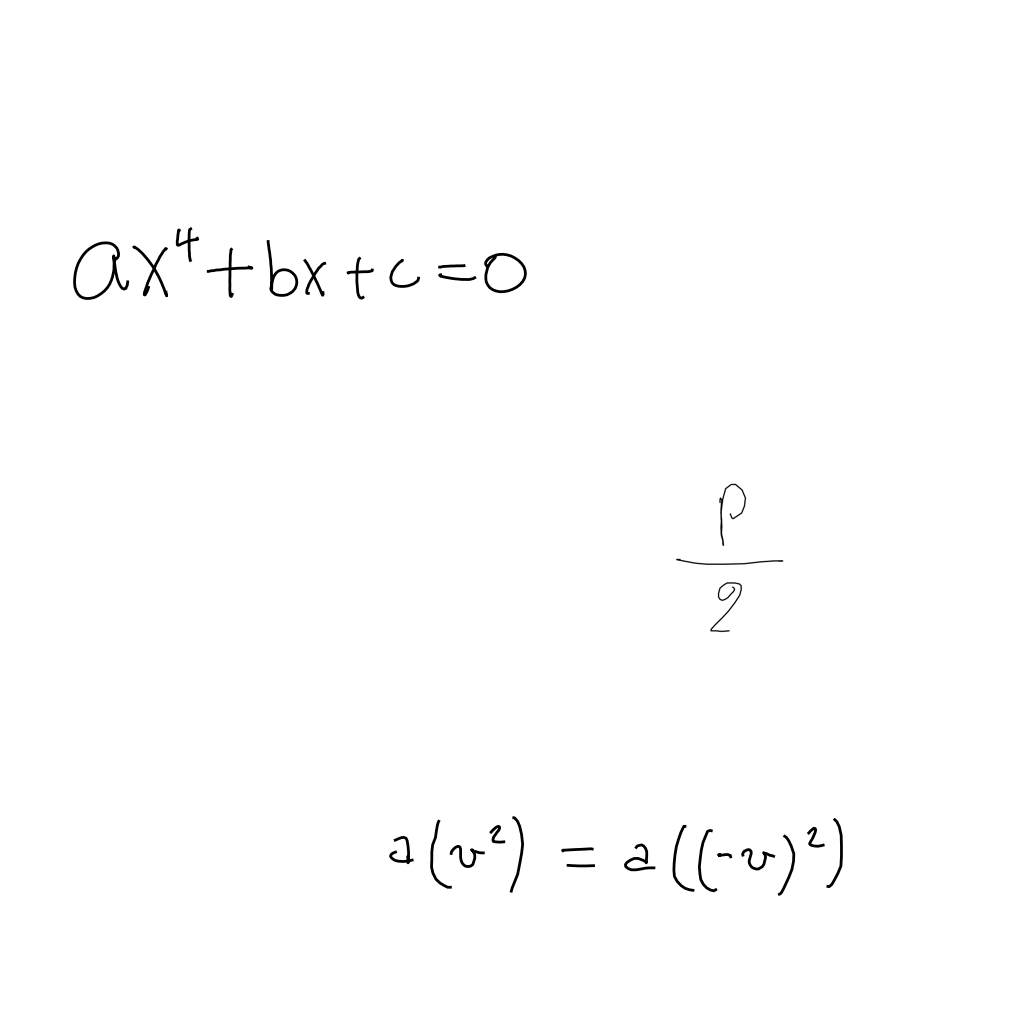 ax⁴+bx+c=0
p/2
a(v²) = a((-v)²)